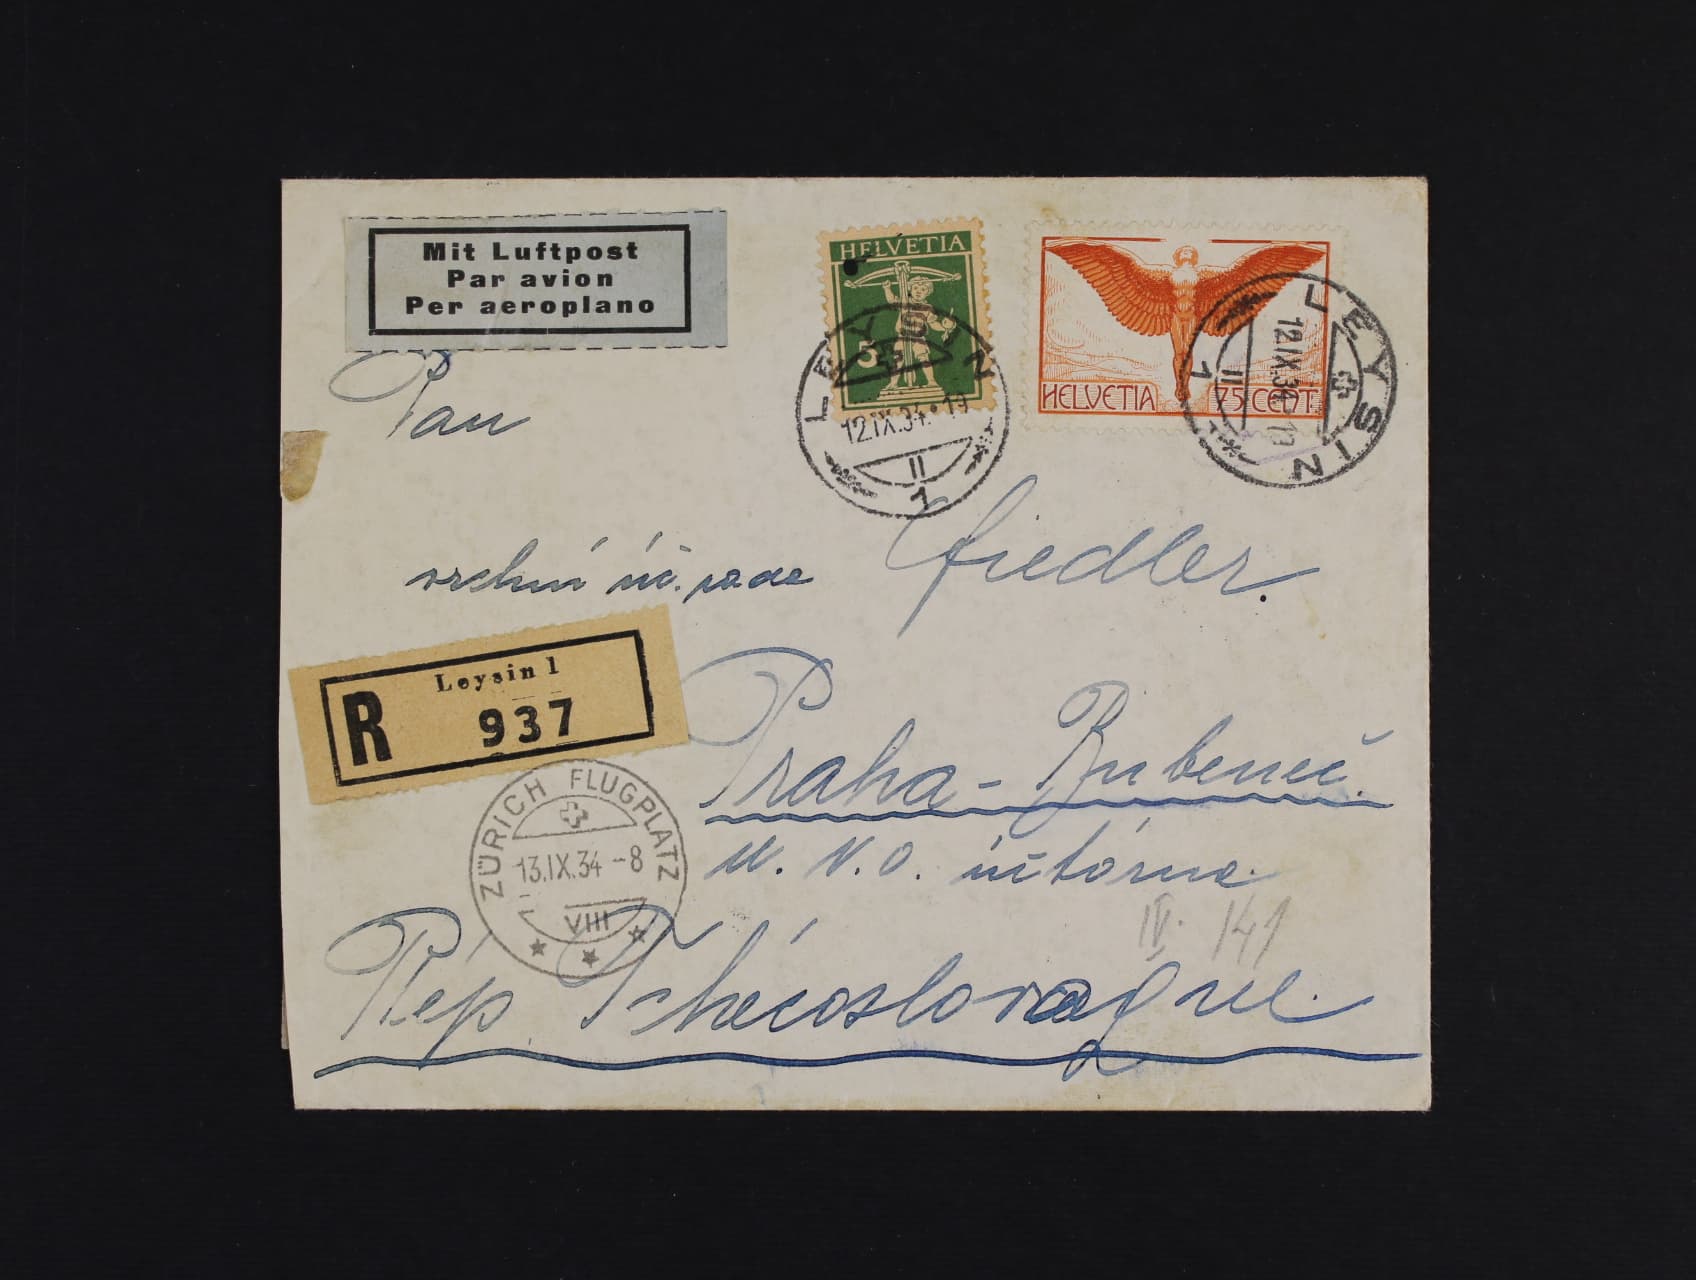 Mit Luftpost
Par avion
Per aeroplano
HELVETIA
5
HELVETIA 75 CENT.
LEYSIN
12.IX.34.19
II
1
LEYSIN
12.IX.34-19
II
1
Pan
vrchní úč. rada Fiedler.
R Leysin 1
937
Praha - Bubeneč.
ZÜRICH FLUGPLATZ
13.IX.34-8
VIII
M. N. O. učtárna.
IV. 141
Rép Tchécoslovaque.